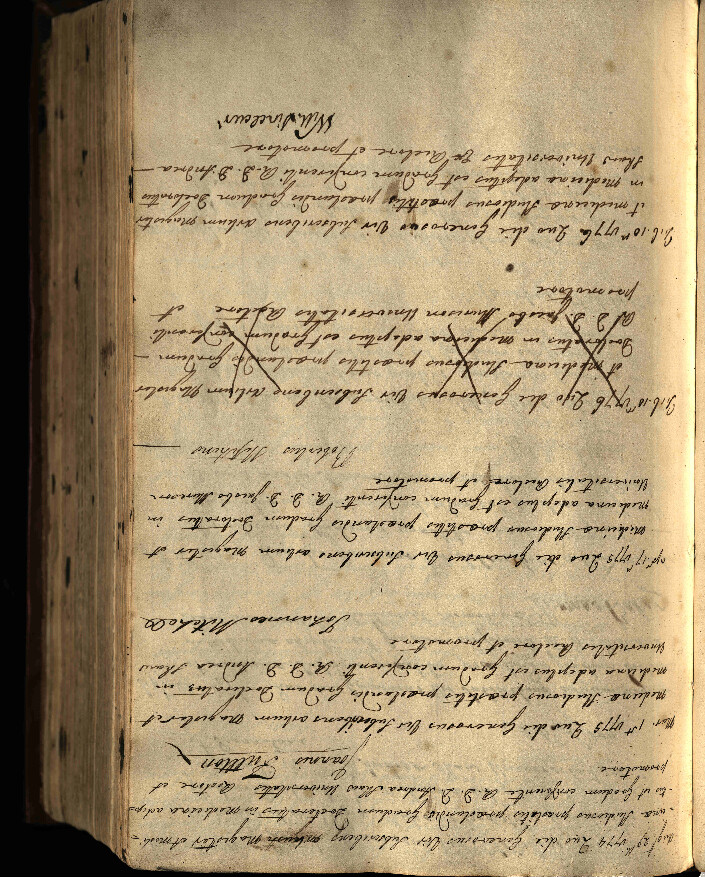 Augt 29th 1774 Quo die Generosus Vir Subscribens artium Magister et medi-
-cinæ Studiosus præstitis præstandis Gradum Doctoratus in medicina adep-
-tus est Gradum conferente R. D. D. Andrea Shaw Universitatis Rectore et
promotore
Joannes Fullton
Mar. 1st 1775 Quo die Generosus Vir Subscribens artium Magister et
medicinæ Studiosus præstitis præstandis Gradum Doctoratus in
medicina adeptus est Gradum conferente R. D. D. Andrea Shaw
Universitatis Rectore et promotore
Johannes Mitchell
17 1775 Quo die Generosus Vir Subscribens artium Magister et
medicinæ Studiosus præstitis præstandis Gradum Doctoratus in
medicina adeptus est Gradum conferente R. D. D. Jacobo Murison
Universitatis Rectore et promotore
Robertus
Feb. 10th 1776 Quo die Generosus Vir Subscribens artium Magister
et medicinæ Studiosus præstitis præstandis Gradum
Doctoratus in medicina adeptus est Gradum conferente
R. D. D. Jacobo Murison Universitatis Rectore et
promotore
Feb. 10th 1776 Quo die Generosus Vir Subscribens artium Magister
et medicinæ Studiosus præstitis præstandis Gradum Doctoratus
in medicina adeptus est Gradum conferente R. D. D. Andrea
Shaw Universitatis Rectore et promotore
Will. Sinclair